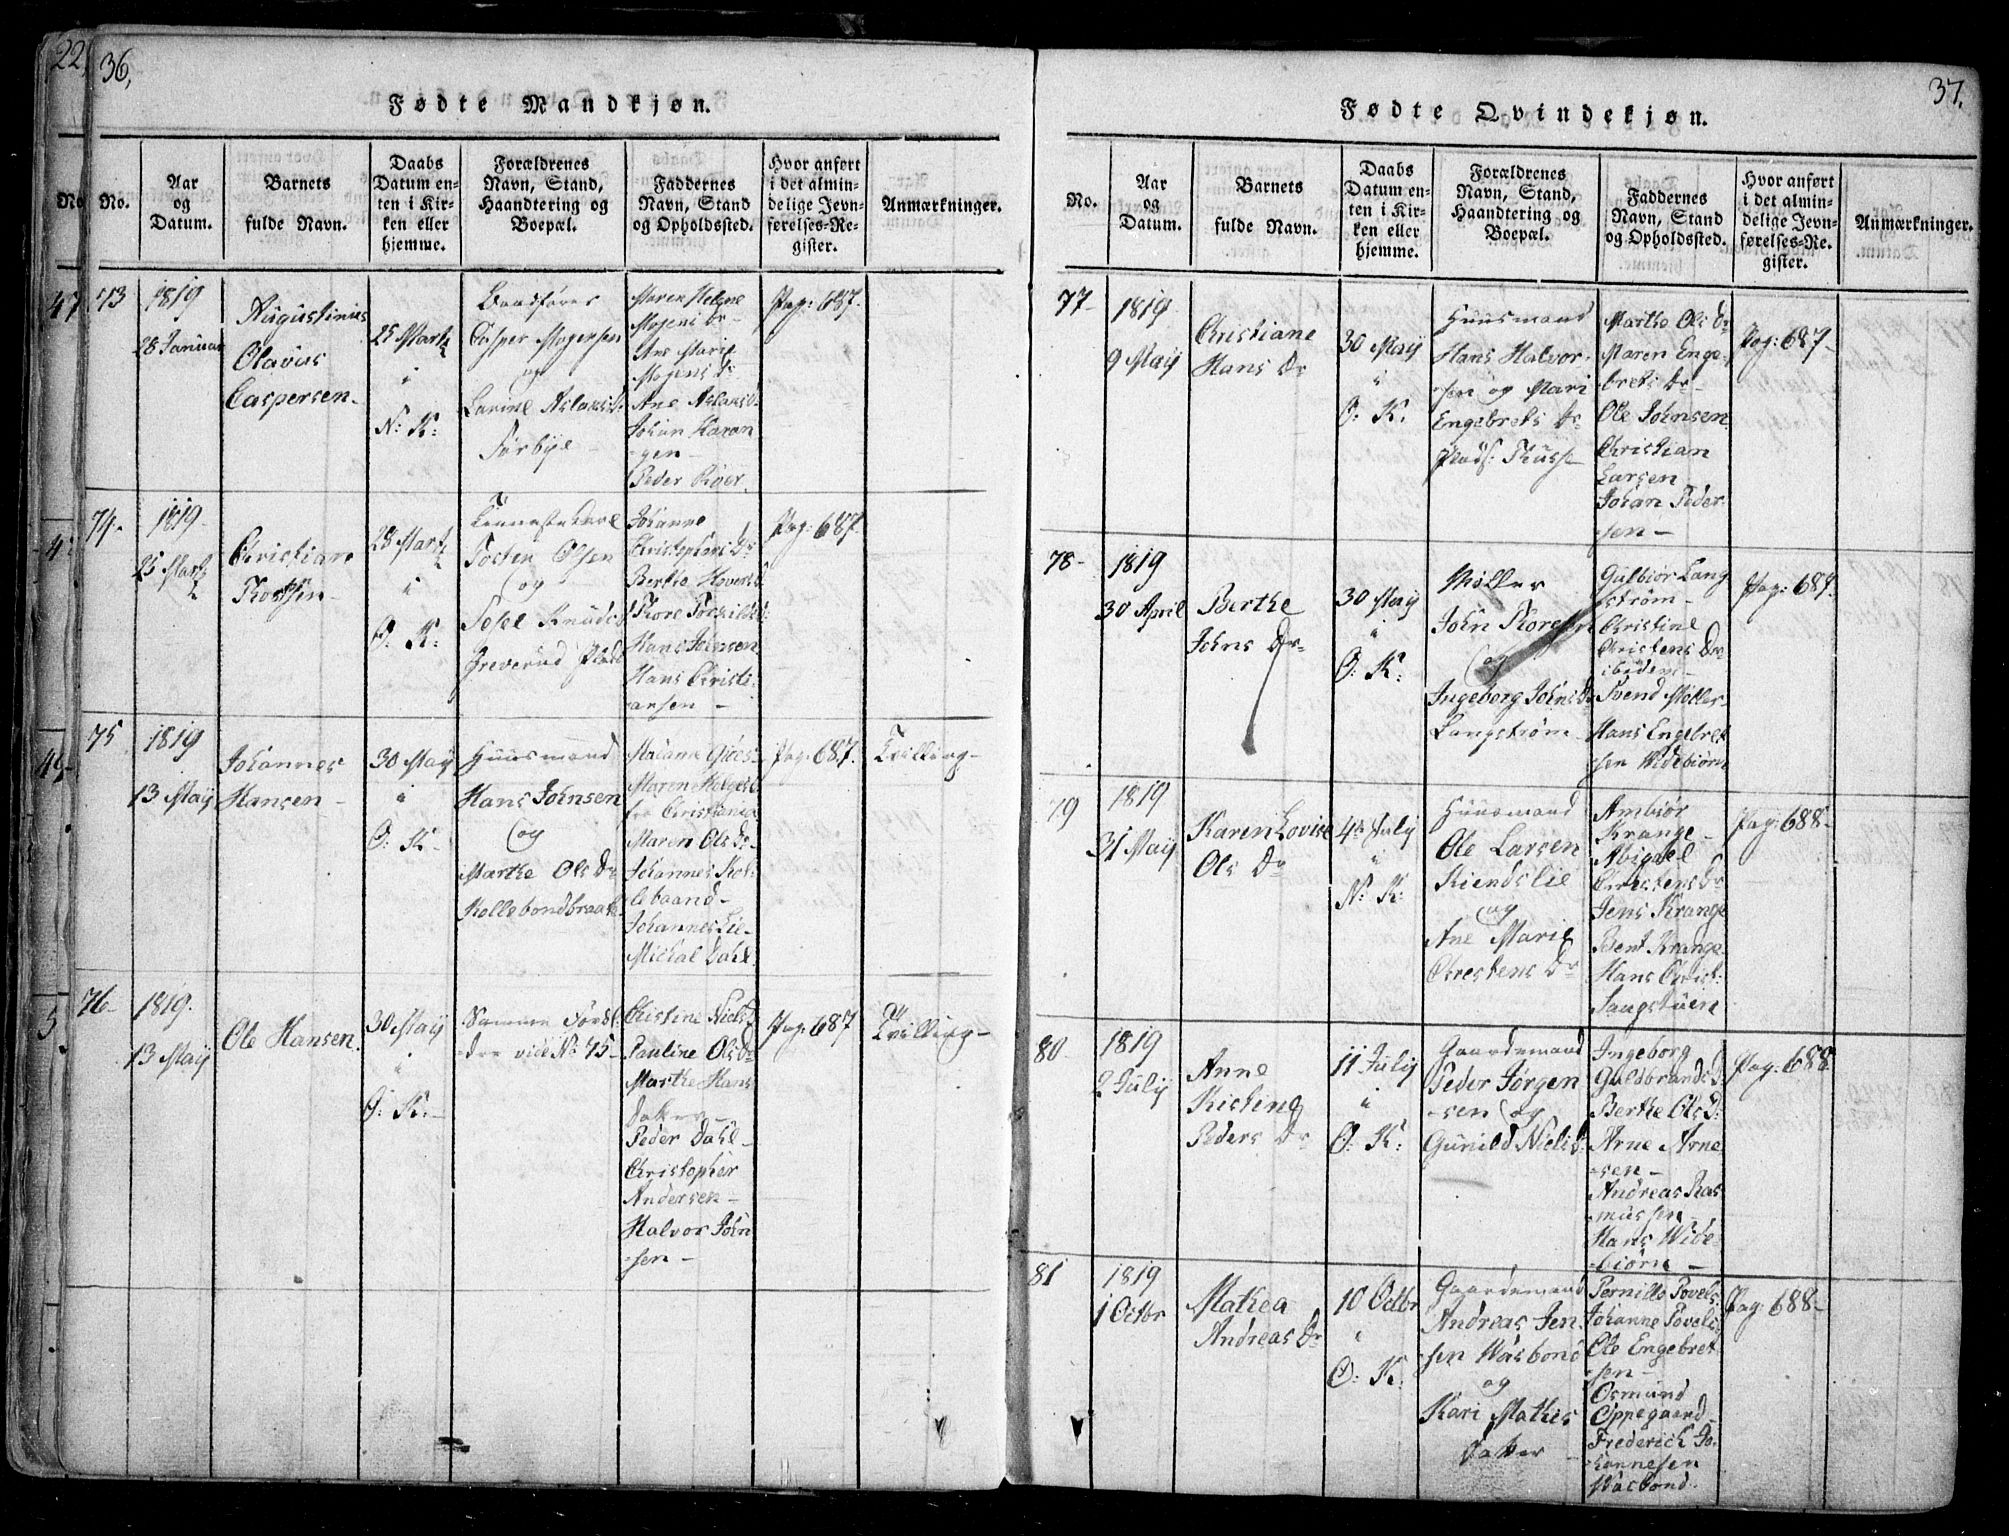 22,
36,
Fødte Mandkjøn.
No.
No.
Aar
og
Datum.
Barnets
fulde Navn.
Daabs
Datum en-
ten i Kir-
ken eller
hjemme.
Forældrenes
Navn, Stand,
Haandtering og
Boepæl.
Faddernes
Navn, Stand
og Opholdssted.
Hvor anført
i det almin-
delige Jevn-
førelses-Re-
gister.
Anmærkninger.
47
73
1819
28 Januar
Augustinius
Olavus
Caspersen-
25 Martz
i
N: K:
Casper Mogensen
og
Larine Aslaksd.
Maren Helene
Mogens Dr-
Ane Marie
Mogens Dr
Ane Aslaksd.
Johan Haran
-gen-
Peder
Pag: 687.
74-
1819-
25 Martz
Christian
28 Martz
i
O: K:
Tosten Olsen
og
Knuds
Johanne
Christophers Dr
Berthe
Thore
Hans Johnsen
Hans Christi-
ansen -
Pag: 687
49-
75
1819
13 May
Johannes
Hansen -
30 May
i
O: K-
Huusmand
Hans Johnsen
og
Marthe Ols Dr
Kollebondbraate
Maren
fra Christiania
Maren Ols Dr-
Johannes Kol-
lebaand-
Johannes Lie-
Michal Dahl-
Pag: 687.
Tvilling-
5
76-
1819.
13 May
Ole Hansen
30 May
i
O: K:-
Samme Foræl-
dre vide No 75-
Christine Niels D
Pauline Ols Dr
Marthe Hans
Datter-
Peder Dahl-
Christopher
Andersen-
Halvor John
-sen-
Pag: 687
Tvilling-
37.
Fødte Qvindekjøn.
No.
Aar
og
Datum.
Barnets
fulde Navn.
Daabs
Datum en-
ten i Kir-
ken eller
hjemme.
Forældrenes
Navn, Stand,
Haandtering og
Boepæl.
Faddernes
Navn, Stand
og Opholdssted.
Hvor anført
i det almin-
delige Jevn-
førelses-Re-
gister.
Anmærkninger.
77-
1819
9 May
Christiane
Hans Dr
30 May
i
O: K.
Huusmand
Hans Halvor-
-sen og Mari
Engebrets Dr
Marthe Ols Dr
Maren Enge-
brets Dr-
Ole Johnsen
Christian
Larsen
Johan Peder-
sen-
Pag: 687-
78-
1819
30 April
Berthe
Johns Dr-
30 May
i
O: K:
Møller
John Thoresen
og
Ingeborg Johns Dr
Langstrøm-
Gulbiør Lang
strøm-
Christine
Christens Dr
ibidem-
Svend Møller-
Hans Engebret
sen Widebiørn
Pag: 687.
79
1819
31 May
Karen Lovise
Ols Dr
4de July
i
N: K:
Huusmand
Ole Larsen
Kiendslie
og
Ane Marie
Christens Dr
Ambiør
Krange-
Abigael
Christens Dr
Jens Krange
Bent Krange
Hans Christ:
Langstuen
Pag: 688-
80-
1819
2 July
Anne
Kistine
Peders Dr
11 July
i
O: K:
Gaardmand
Peder Jørgen
-sen og
Gunild Niels D:
Ingeborg
Guldbrands D
Berthe Ols D:
Arne Arne
-sen-
Andreas Ras
mussen-
Hans Wide-
biørn-
Pag: 688
81
1819
1 Octbr
Mathea
Andreas Dr
10 Octbr
i
O: K:
Gaardmand
Andreas Jen-
sen Wasbond
og
Kari Mathis
Datter -
Pernille Povels
Johanne Povels
Ole Engebret
-sen-
Osmund
Oppegaard-
Frederich Jo-
hannesen
Wasbond.
Pag: 688-